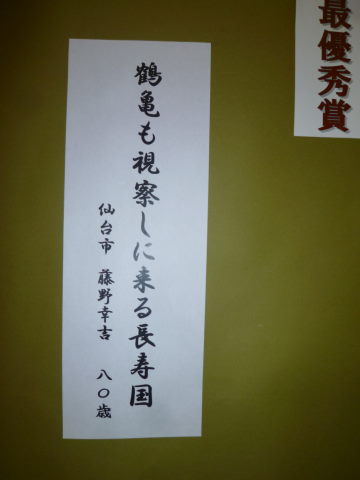 最優秀賞
鶴亀も視察しに来る長寿国
仙台市 藤野幸吉 八〇歳